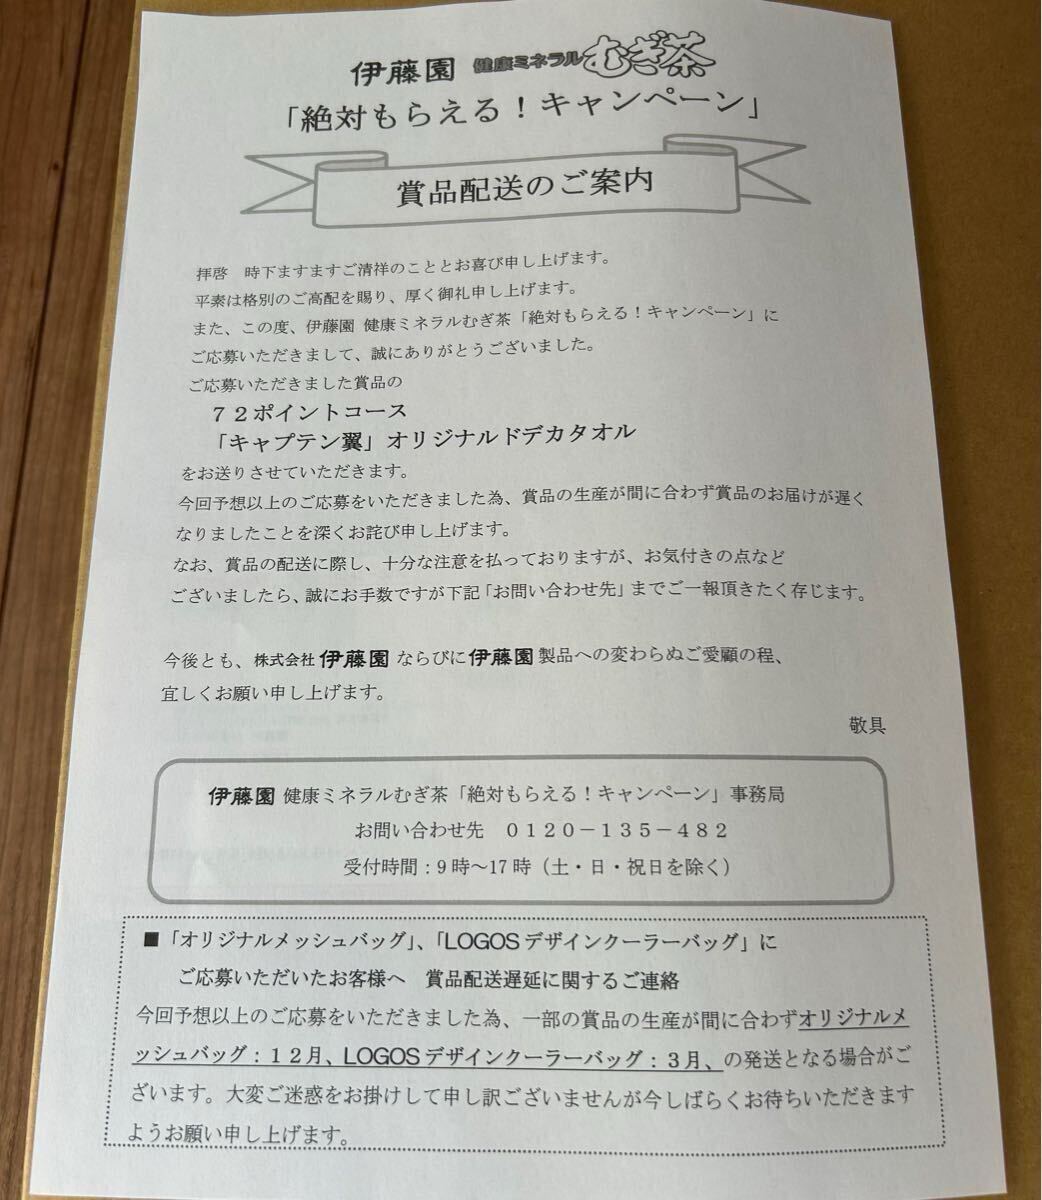 伊藤園 健康ミネラルむぎ茶
「絶対もらえる！キャンペーン」
賞品配送のご案内
拝啓　時下ますますご清祥のこととお喜び申し上げます。
平素は格別のご高配を賜り、厚く御礼申し上げます。
また、この度、伊藤園 健康ミネラルむぎ茶「絶対もらえる！キャンペーン」に
ご応募いただきまして、誠にありがとうございました。
ご応募いただきました賞品の
７２ポイントコース
「キャプテン翼」オリジナルドデカタオル
をお送りさせていただきます。
今回予想以上のご応募をいただきました為、賞品の生産が間に合わず賞品のお届けが遅く
なりましたことを深くお詫び申し上げます。
なお、賞品の配送に際し、十分な注意を払っておりますが、お気付きの点など
ございましたら、誠にお手数ですが下記「お問い合わせ先」までご一報頂きたく存じます。
今後とも、株式会社 伊藤園 ならびに 伊藤園 製品への変わらぬご愛顧の程、
宜しくお願い申し上げます。
敬具
伊藤園 健康ミネラルむぎ茶「絶対もらえる！キャンペーン」事務局
お問い合わせ先　０１２０－１３５－４８２
受付時間：９時～17時（土・日・祝日を除く）
■「オリジナルメッシュバッグ」、「LOGOSデザインクーラーバッグ」に
ご応募いただいたお客様へ　賞品配送遅延に関するご連絡
今回予想以上のご応募をいただきました為、一部の賞品の生産が間に合わずオリジナルメ
ッシュバッグ：１２月、LOGOSデザインクーラーバッグ：３月、の発送となる場合がご
ざいます。大変ご迷惑をお掛けして申し訳ございませんが今しばらくお待ちいただきます
ようお願い申し上げます。